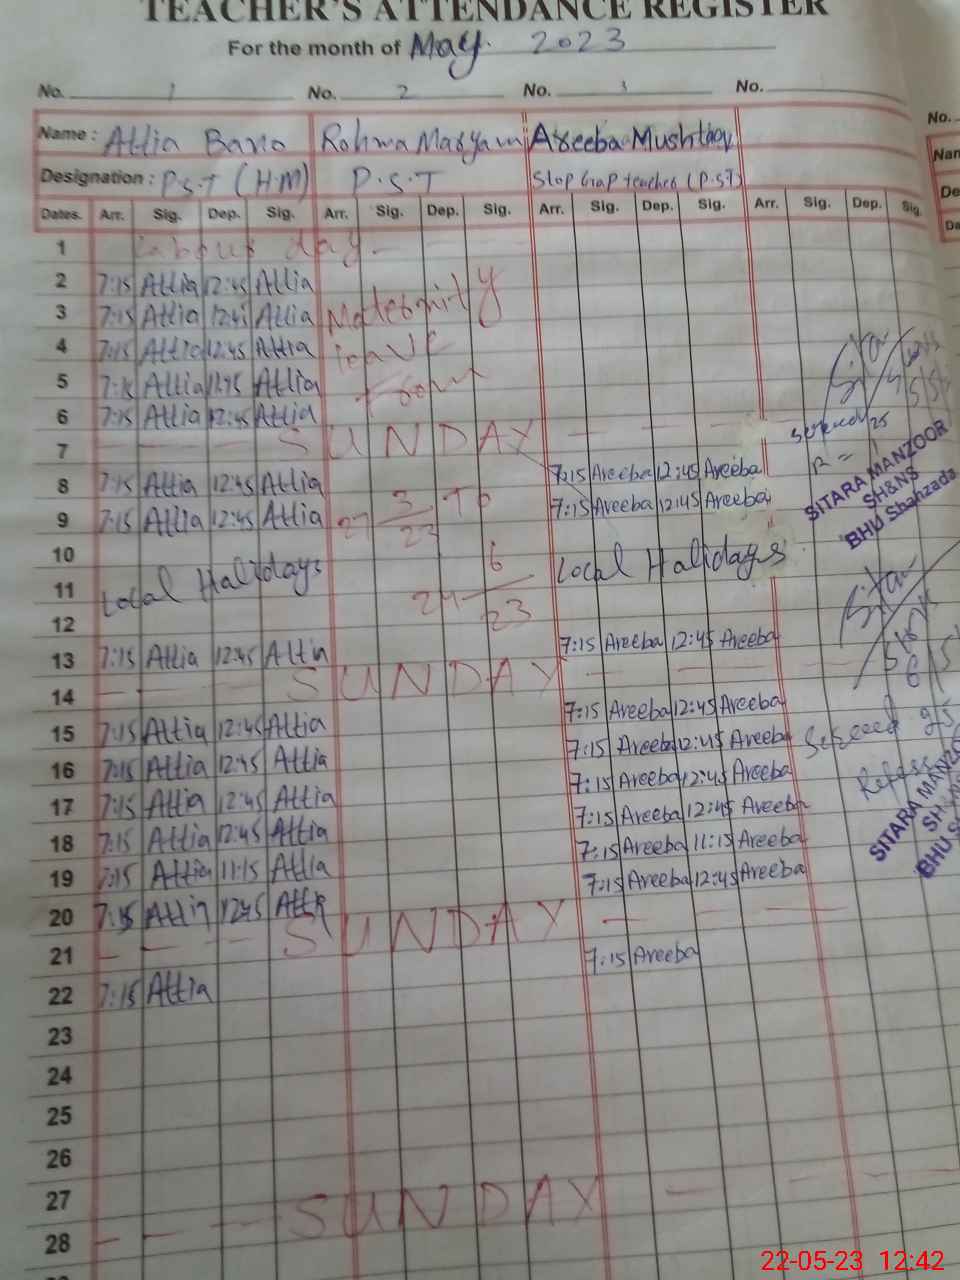 TEACHER'S ATTENDANCE REGISTER
For the month of May. 2023
No. 1 No. 2 No. 3 No. No.
Name : Attia Bano Rohma Maryam Areeba Mushtaq Nam
Designation : P.S.T (H.M) P.S.T Stop Gap teacher (P.ST) De
Dates. Arr. Sig. Dep. Sig. Arr. Sig. Dep. Sig. Arr. Sig. Dep. Sig. Arr. Sig. Dep. Sig. Da
1 Labour day
2 7:15 Attia 12:45 Attia
3 7:15 Attia 12:45 Attia Maternity
4 7:15 Attia 12:45 Attia leave
5 7:15 Attia 11:15 Attia from
6 7:15 Attia 12:45 Attia
7 SUNDAY
8 7:15 Attia 12:45 Attia 7:15 Areeba 12:45 Areeba
9 7:15 Attia 12:45 Attia 27 3/23 To 7:15 Areeba 12:45 Areeba
10
11 Local Halidays 24 6/23 Local Halidays
12
13 7:15 Attia 12:45 Attia 7:15 Areeba 12:45 Areeba
14 SUNDAY
15 7:15 Attia 12:45 Attia 7:15 Areeba 12:45 Areeba
16 7:15 Attia 12:45 Attia 7:15 Areeba 12:45 Areeba
17 7:15 Attia 12:45 Attia 7:15 Areeba 12:45 Areeba
18 7:15 Attia 12:45 Attia 7:15 Areeba 12:45 Areeba
19 7:15 Attia 11:15 Attia 7:15 Areeba 11:15 Areeba
20 7:15 Attia 12:45 Attia 7:15 Areeba 12:45 Areeba
21 SUNDAY
22 7:15 Attia 7:15 Areeba
23
24
25
26
27
28 SUNDAY
SITARA MANZOOR
SH&NS
BHU Shahzada
SITARA MANZO
BHU
22-05-23 12:42